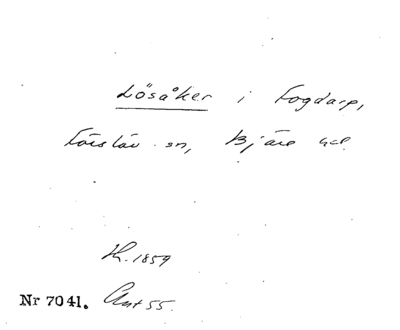 Lösåker i Fogdarp,
Förslöv sn, Bjäre hd.
Kh. 1859
Nr 7041. Ant 55.